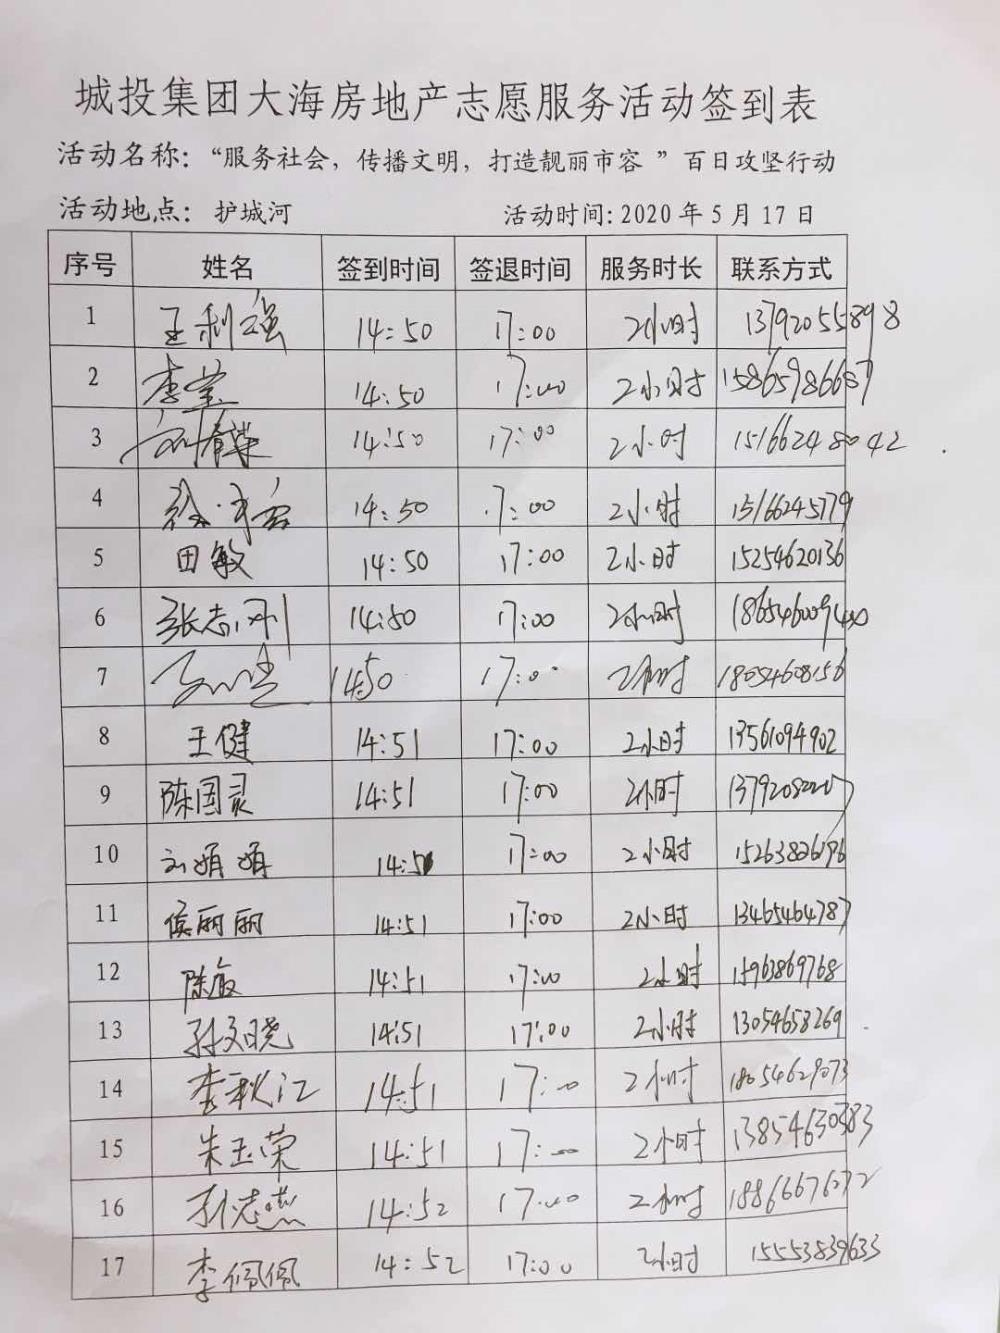 城投集团大海房地产志愿服务活动签到表
活动名称：“服务社会，传播文明，打造靓丽市容 ”百日攻坚行动
活动地点： 护城河 活动时间: 2020 年 5 月 17 日
序号 姓名 签到时间 签退时间 服务时长 联系方式
1 王利强 14:50 17:00 2小时 13792055898
2 李莹 14:50 17:00 2小时 15865986687
3 14:50 17:00 2小时 15166248042
4 14:50 17:00 2小时 15166245779
5 田敏 14:50 17:00 2小时 15254620136
6 张志刚 14:50 17:00 2小时
7 14:50 17:00 2小时 18054608156
8 王健 14:51 17:00 2小时 13561094902
9 陈国灵 14:51 17:00 2小时
10 刘娟娟 14:51 17:00 2小时 15263826196
11 侯丽丽 14:51 17:00 2小时 13465464787
12 陈敏 14:51 17:00 2小时 15963869768
13 孙文晓 14:51 17:00 2小时 13054658269
14 李秋江 14:51 17:00 2小时 18054629073
15 朱玉荣 14:51 17:00 2小时 13854630383
16 14:52 17:00 2小时 18866676272
17 李佩佩 14:52 17:00 2小时 15553839633